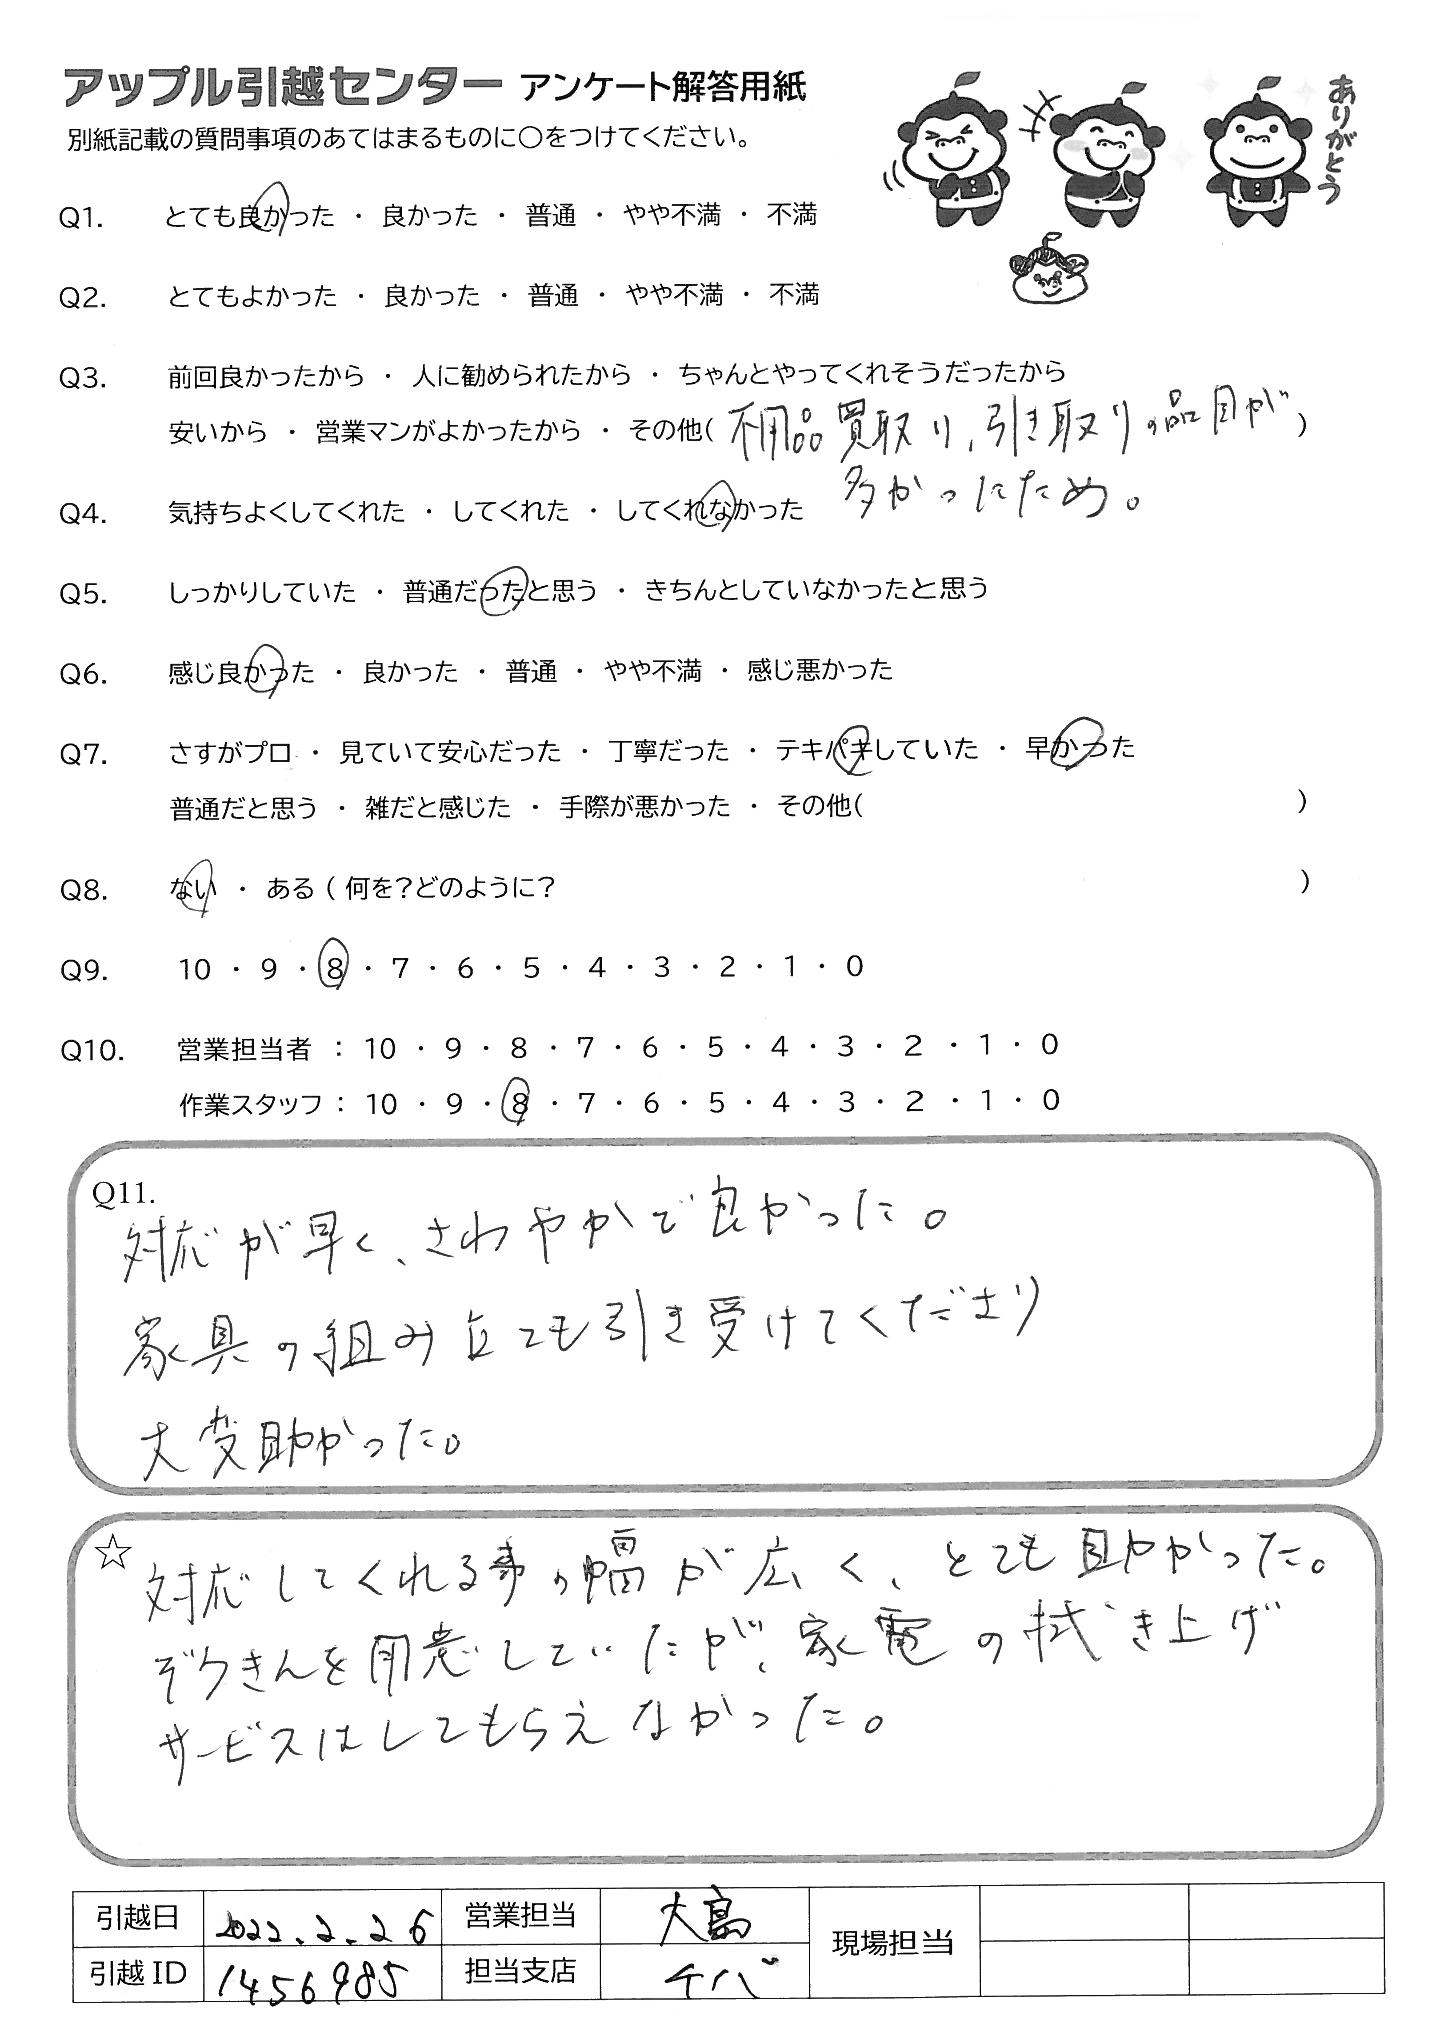 アップル引越センター アンケート解答用紙
別紙記載の質問事項のあてはまるものに〇をつけてください。
ありがとう
Q1. とても良かった ・ 良かった ・ 普通 ・ やや不満 ・ 不満
Q2. とてもよかった ・ 良かった ・ 普通 ・ やや不満 ・ 不満
Q3. 前回良かったから ・ 人に勧められたから ・ ちゃんとやってくれそうだったから
安いから ・ 営業マンがよかったから ・ その他( 不用品買取り、引き取りの品目が )
多かったため。
Q4. 気持ちよくしてくれた ・ してくれた ・ してくれなかった
Q5. しっかりしていた ・ 普通だったと思う ・ きちんとしていなかったと思う
Q6. 感じ良かった ・ 良かった ・ 普通 ・ やや不満 ・ 感じ悪かった
Q7. さすがプロ ・ 見ていて安心だった ・ 丁寧だった ・ テキパキしていた ・ 早かった
普通だと思う ・ 雑だと感じた ・ 手際が悪かった ・ その他( )
Q8. ない ・ ある ( 何を?どのように? )
Q9. 10 ・ 9 ・ 8 ・ 7 ・ 6 ・ 5 ・ 4 ・ 3 ・ 2 ・ 1 ・ 0
Q10. 営業担当者 : 10 ・ 9 ・ 8 ・ 7 ・ 6 ・ 5 ・ 4 ・ 3 ・ 2 ・ 1 ・ 0
作業スタッフ : 10 ・ 9 ・ 8 ・ 7 ・ 6 ・ 5 ・ 4 ・ 3 ・ 2 ・ 1 ・ 0
Q11.
対応が早く、さわやかで良かった。
家具の組み立ても引き受けてくださり
大変助かった。
☆ 対応してくれる事の幅が広く、とても助かった。
ぞうきんを用意していたが、家電の拭き上げ
サービスはしてもらえなかった。
引越日 2022.2.26 営業担当 大島 現場担当
引越ID 1456985 担当支店 チバ